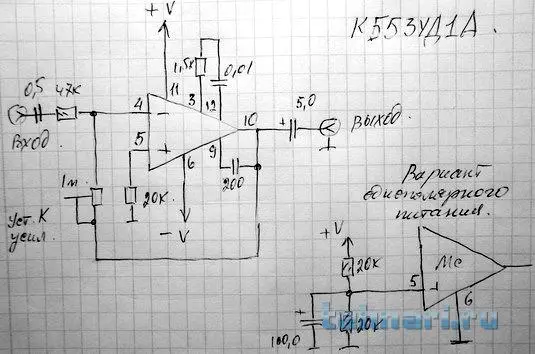 +V
К553УД1А.
1,5к
0,01
0,5
47к
11
3
12
4
10
5,0
+
ВХОД.
ВЫХОД.
5
9
6
200
1м
20к.
Уст. К
усил.
-V
Вариант
однополярного
питания.
+V
20к
Мс
5
6
+
20к
100,0
tehnari.ru